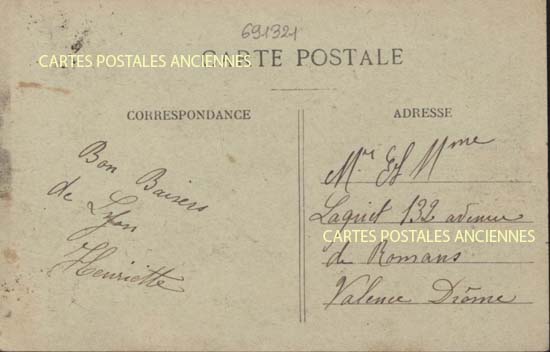 691321
CARTE POSTALE
CARTES POSTALES ANCIENNES
CORRESPONDANCE
Bon Baisers
de Lyon
Henriette
ADRESSE
Mr Et Mme
Laguet 132 avenue
CARTES POSTALES ANCIENNES
de Romans
Valence Drôme